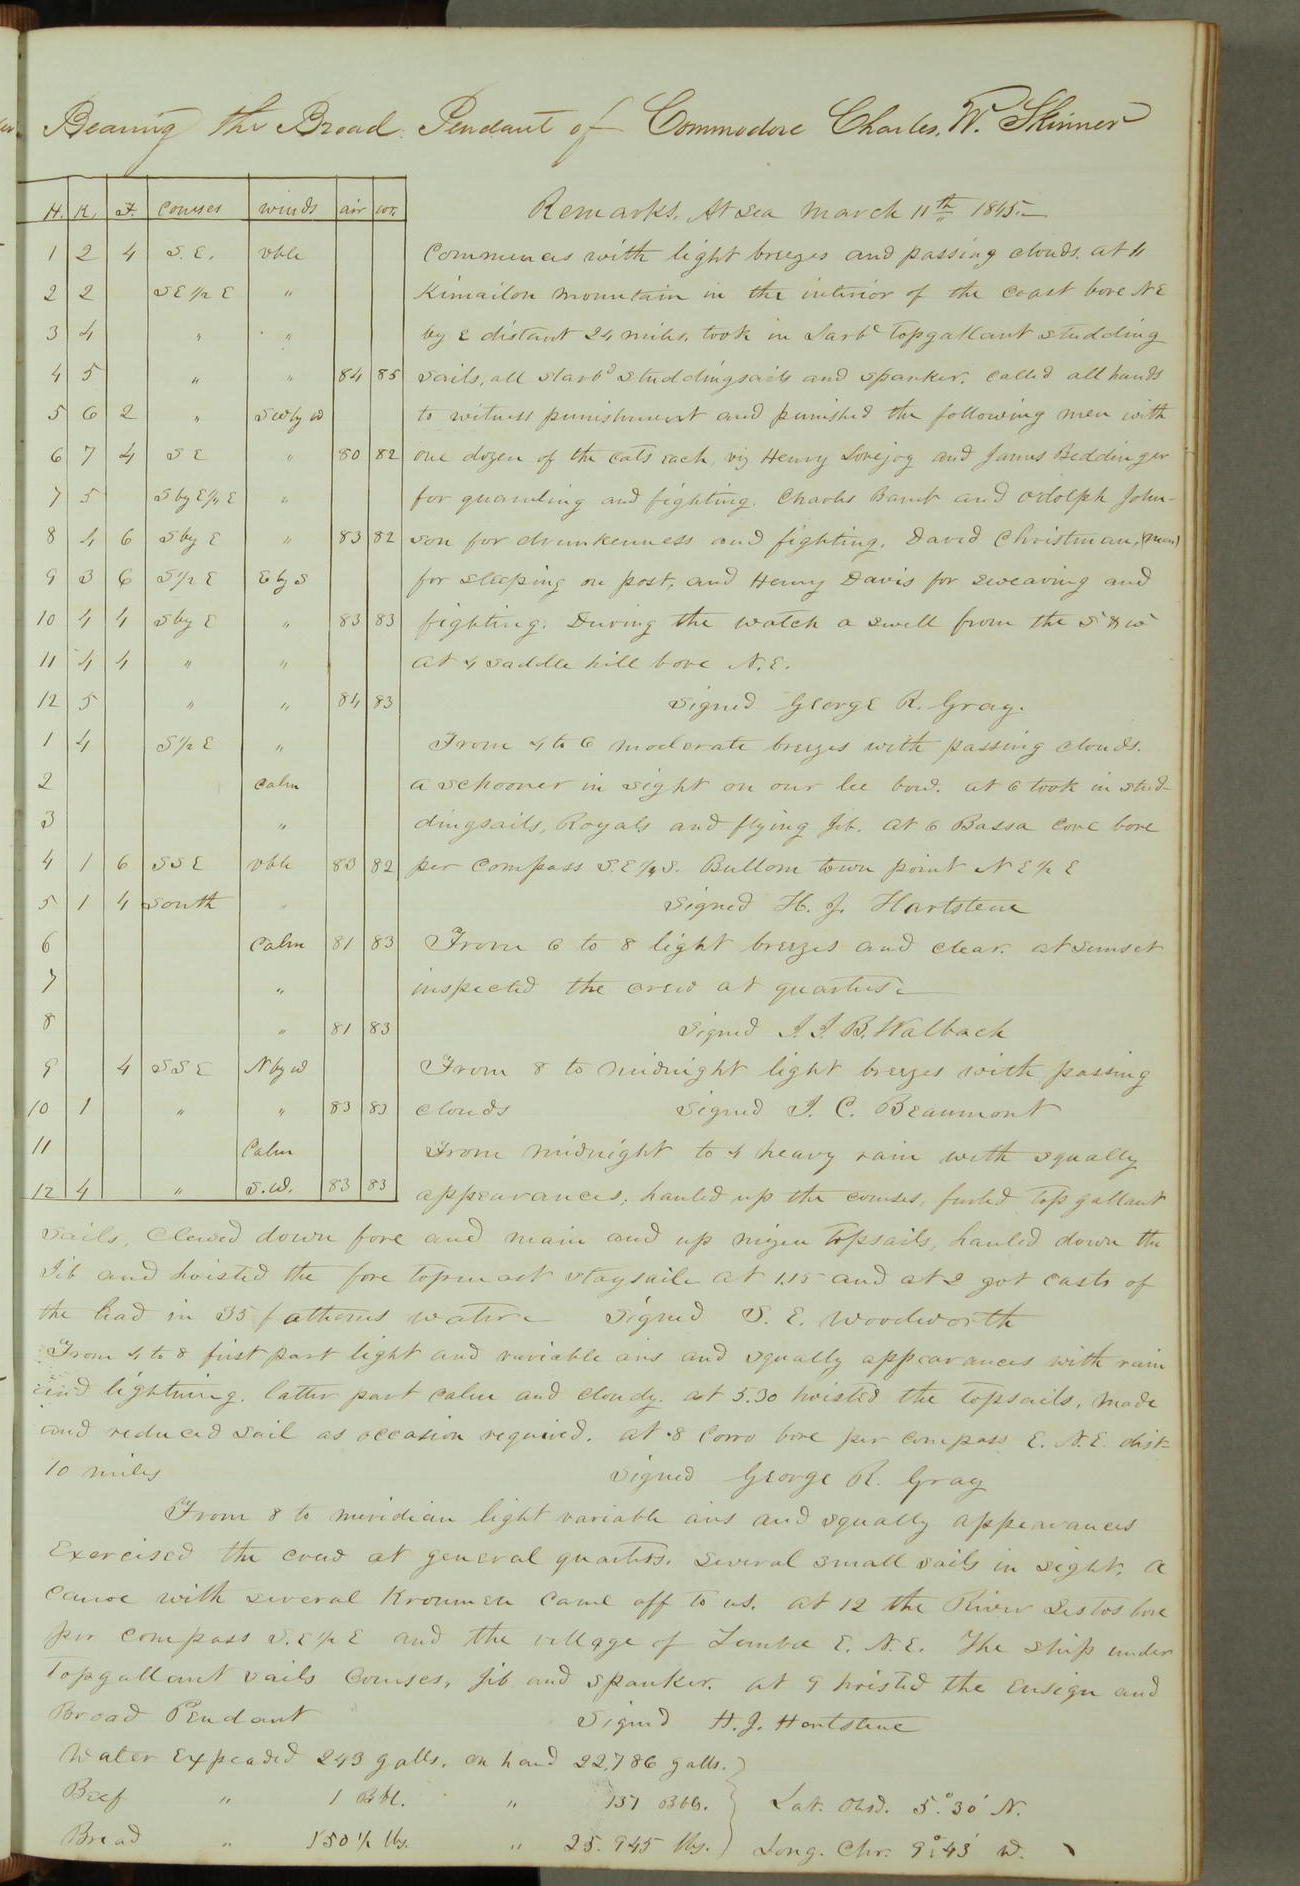 Bearing the Broad Pendant of Commodore Charles. W. Skinner
H. K. F. Courses Winds air wr.
Remarks. At Sea March 11th 1845.
1 2 4 S.E. vble
Commences with light breezes and passing clouds. at 11
2 2 SE 1/2 E "
Kimailon mountain in the interior of the coast bore NE
3 4 " "
by E distant 24 miles, took in Larbd Topgallant studding
4 5 " " 84 85
sails, all starbd studdingsails and spanker. Called all hands
5 6 2 " SW by W
to witness punishment and punished the following men with
6 7 4 SE " 80 82
one dozen of the cats each, viz Henry Lovejoy and James Beddinger
7 5 S by E 1/2 E "
for quarreling and fighting. Charles Barnt and Adolph John-
8 4 6 S by E " 83 82
son for drunkenness and fighting. David Christman, (mar)
9 3 6 S 1/2 E E by S
for sleeping on post, and Henry Davis for swearing and
10 4 4 S by E " 83 83
fighting. During the watch a swell from the S & W
11 4 4 " "
at 4 saddle hill bore N.E.
12 5 " " 84 83
Signed George R. Gray.
1 4 S 1/2 E "
From 4 to 6 moderate breezes with passing clouds.
2 Calm
a schooner in sight on our lee bow. at 6 took in stud-
3 "
dingsails, Royals and flying Jib. at 6 Bassa Cove bore
4 1 6 SSE vble 83 82
per compass S.E 1/4 S. Bullom town point N E 1/2 E
5 1 4 South "
Signed H. J. Hartstene
6 Calm 81 83
From 6 to 8 light breezes and clear. at sunset
7 "
inspected the crew at quarters.
8 " 81 83
Signed J. J. B. Walbach
9 4 SSE N by W
From 8 to midnight light breezes with passing
10 1 " " 83 83
clouds Signed J. C. Beaumont
11 Calm
From midnight to 4 heavy rain with squally
12 4 " S.W. 83 83
appearances, hauled up the courses, furled top gallant
sails, Clewed down fore and main and up mizen Topsails, hauled down the
Jib and hoisted the fore topmast staysail. at 1.15 and at 2 got casts of
the lead in 35 fathoms water. Signed S. E. Woodworth
From 4 to 8 first part light and variable airs and squally appearances with rain
and lightning. latter part calm and cloudy. at 5.30 hoisted the topsails, made
and reduced sail as occasion required. at 8 Corro bore per compass E. N.E. dist-
10 miles Signed George R. Gray
From 8 to meridian light variable airs and squally appearances
Exercised the crew at general quarters. several small sails in sight. A
canoe with several Kroumen came off to us. at 12 the River Sestos bore
per compass S.E 1/2 E and the village of Timba E. N.E. The ship under
Topgallant sails Courses, Jib and spanker. at 9 hoisted the Ensign and
Broad Pendant Signed H. J. Hartstene
Water Expended 243 galls. on hand 22,786 galls.
Beef " 1 Bbl. " 137 Bbls. Lat. Obsd. 5.° 30' N.
Bread " 150 1/2 lbs. " 25.945 lbs. Long. Chr. 9° 43' W.